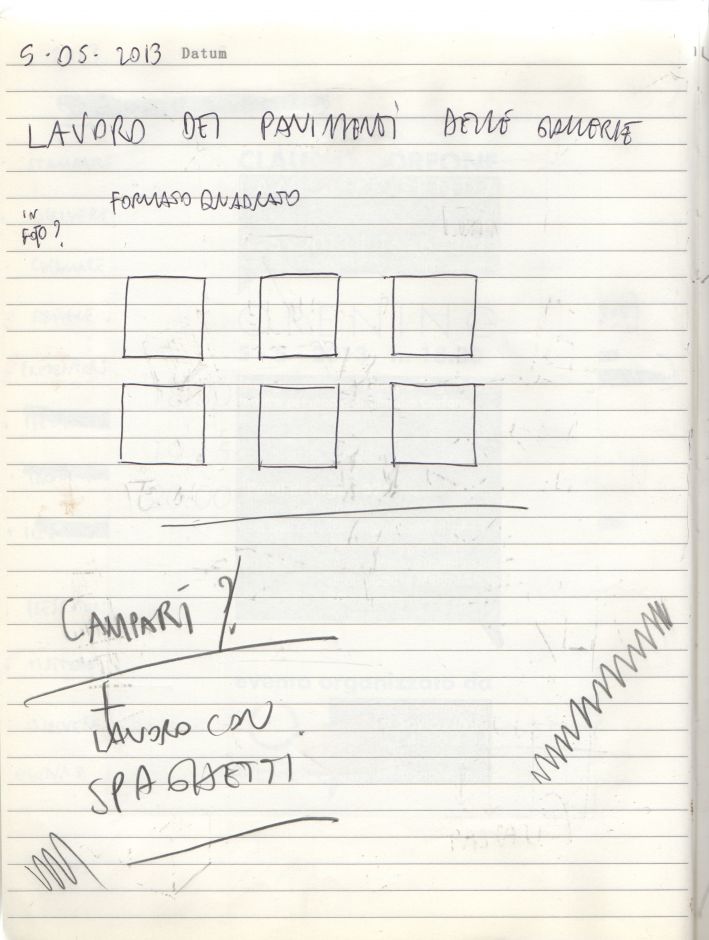 5.05.2013 Datum
LAVORO DEI PAVIMENTI DELLE GALLERIE
FORMATO QUADRATO
IN
FOTO?
CAMPARI ?
LAVORO CON
SPAGHETTI